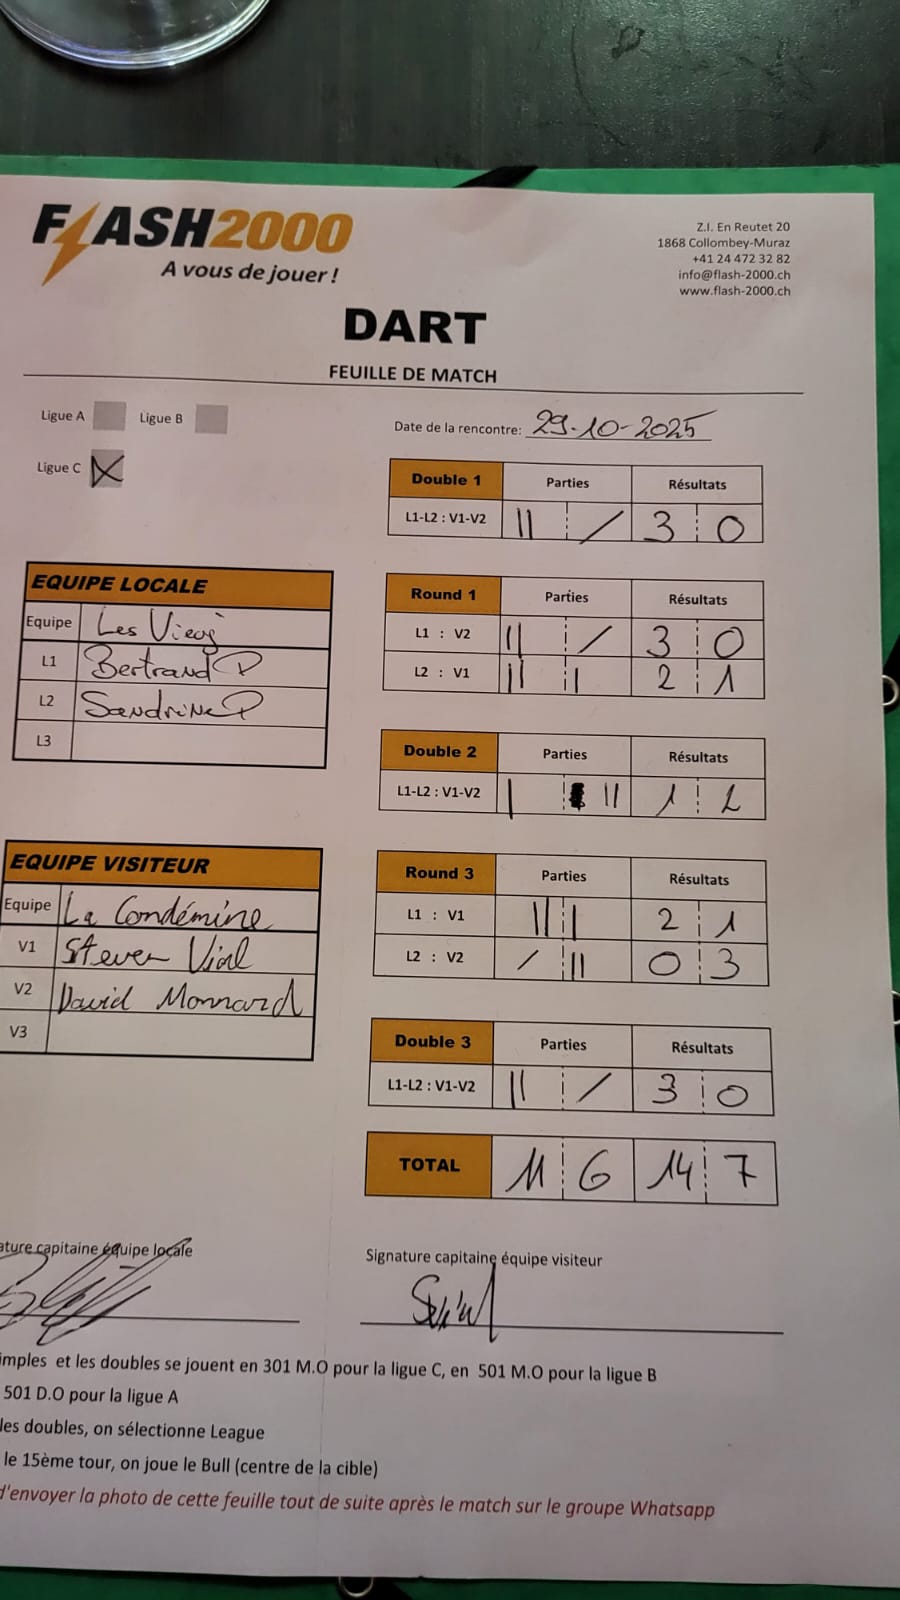 FLASH2000
A vous de jouer !
Z.I. En Reutet 20
1868 Collombey-Muraz
+41 24 472 32 82
info@flash-2000.ch
www.flash-2000.ch
DART
FEUILLE DE MATCH
Ligue A Ligue B
Ligue C X
Date de la rencontre: 29-10-2025
Double 1 Parties Résultats
L1-L2 : V1-V2 || / 3 0
EQUIPE LOCALE
Equipe Les
L1 Bertrand P
L2 Sandrine P
L3
Round 1 Parties Résultats
L1 : V2 || / 3 0
L2 : V1 || | 2 1
Double 2 Parties Résultats
L1-L2 : V1-V2 | || 1 2
EQUIPE VISITEUR
Equipe La Condémine
V1 Steven Vial
V2 David Monnard
V3
Round 3 Parties Résultats
L1 : V1 || | 2 1
L2 : V2 / || 0 3
Double 3 Parties Résultats
L1-L2 : V1-V2 || / 3 0
TOTAL 11 6 14 7
ature capitaine équipe locale
Signature capitaine équipe visiteur
imples et les doubles se jouent en 301 M.O pour la ligue C, en 501 M.O pour la ligue B
501 D.O pour la ligue A
les doubles, on sélectionne League
le 15ème tour, on joue le Bull (centre de la cible)
d'envoyer la photo de cette feuille tout de suite après le match sur le groupe Whatsapp